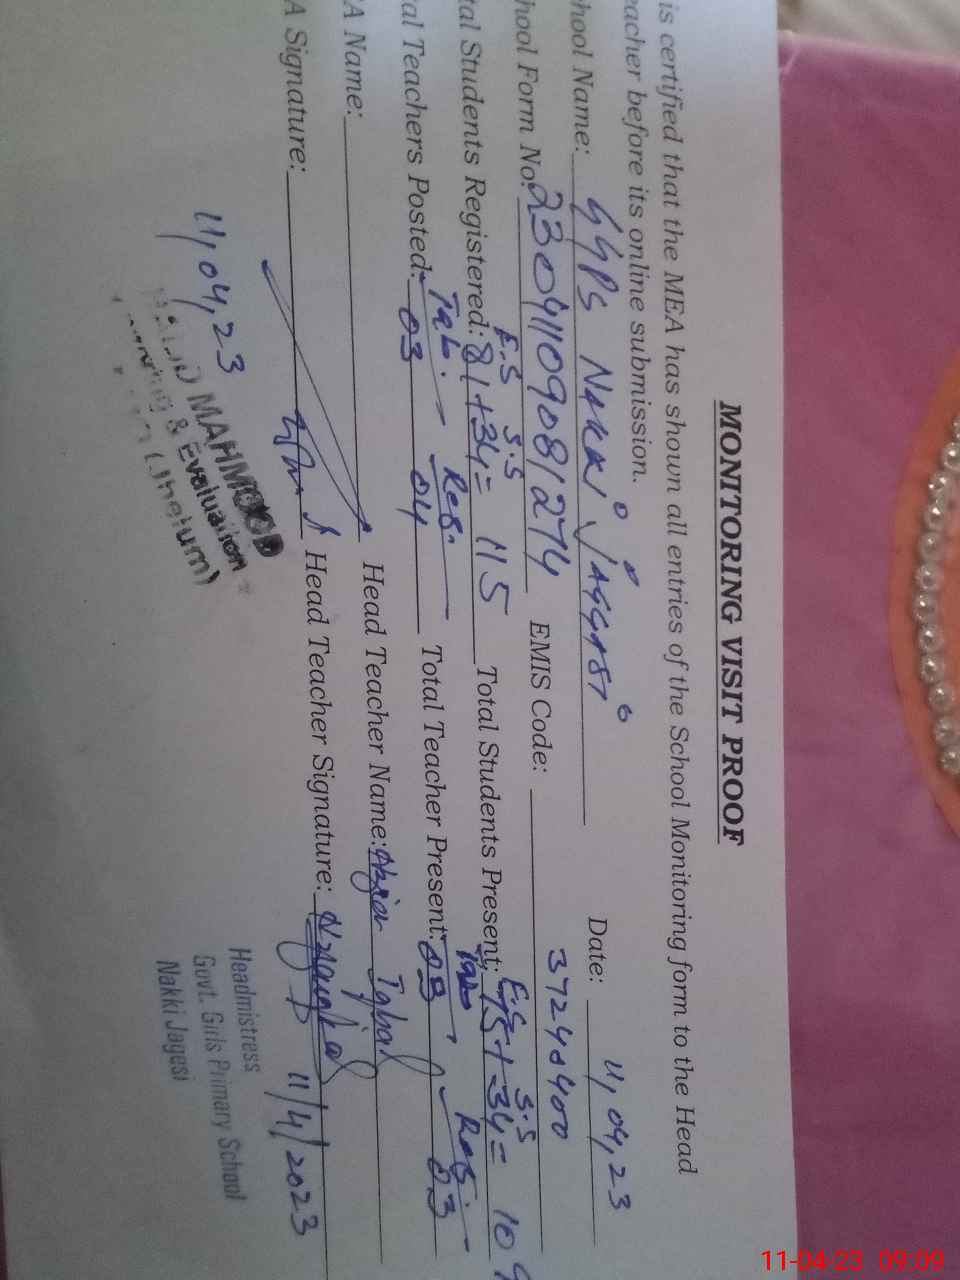 MONITORING VISIT PROOF
is certified that the MEA has shown all entries of the School Monitoring form to the Head
eacher before its online submission.
hool Name: GGPS NAKKI JAGGASI Date: 11,04,23
hool Form No: 23041109081274 EMIS Code: 37240400
E.S S.S E.S S.S
tal Students Registered: 81+34= 115 Total Students Present: 75+34= 10
Tab. Reg. Tab Reg.
al Teachers Posted: 03 04 Total Teacher Present: 03 03
A Name: Head Teacher Name: Iqbal
A Signature: Head Teacher Signature: 11/4/2023
11,04,23
MAHMOOD
& Evaluation
(Jhelum)
Headmistress
Govt. Girls Primary School
Nakki Jagasi
11-04-23 09:09